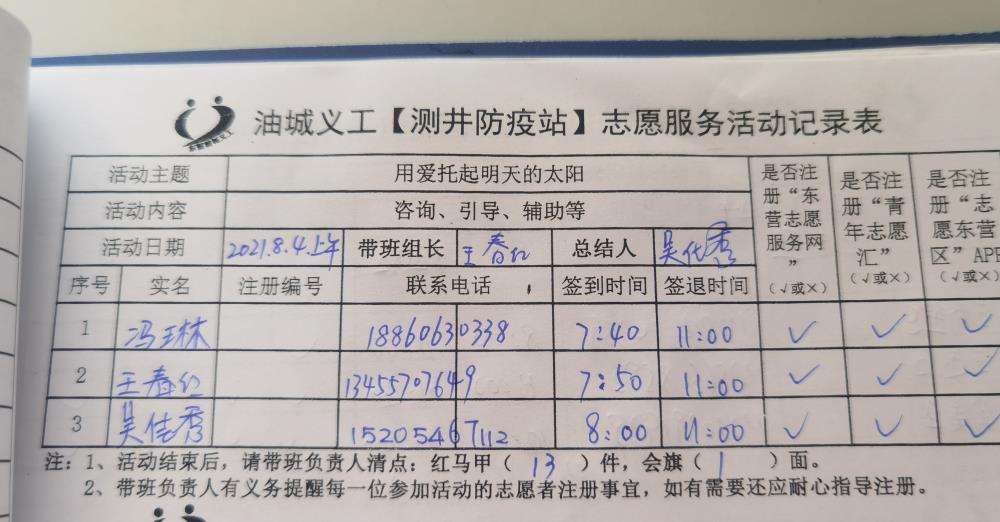 油城义工【测井防疫站】志愿服务活动记录表
活动主题 用爱托起明天的太阳 是否注册“东营志愿服务网”(√或×) 是否注册“青年志愿汇”(√或×) 是否注册“志愿东营区”APP(√或×)
活动内容 咨询、引导、辅助等
活动日期 2021.8.4.上午 带班组长 王春红 总结人 吴佳秀
序号 实名 注册编号 联系电话 签到时间 签退时间
1 冯玉林 18860630338 7:40 11:00 ✓ ✓ ✓
2 王春红 13455707649 7:50 11:00 ✓ ✓ ✓
3 吴佳秀 15205467112 8:00 11:00 ✓ ✓ ✓
注：1、活动结束后，请带班负责人清点：红马甲（ 13 ）件，会旗（ 1 ）面。
2、带班负责人有义务提醒每一位参加活动的志愿者注册事宜，如有需要还应耐心指导注册。